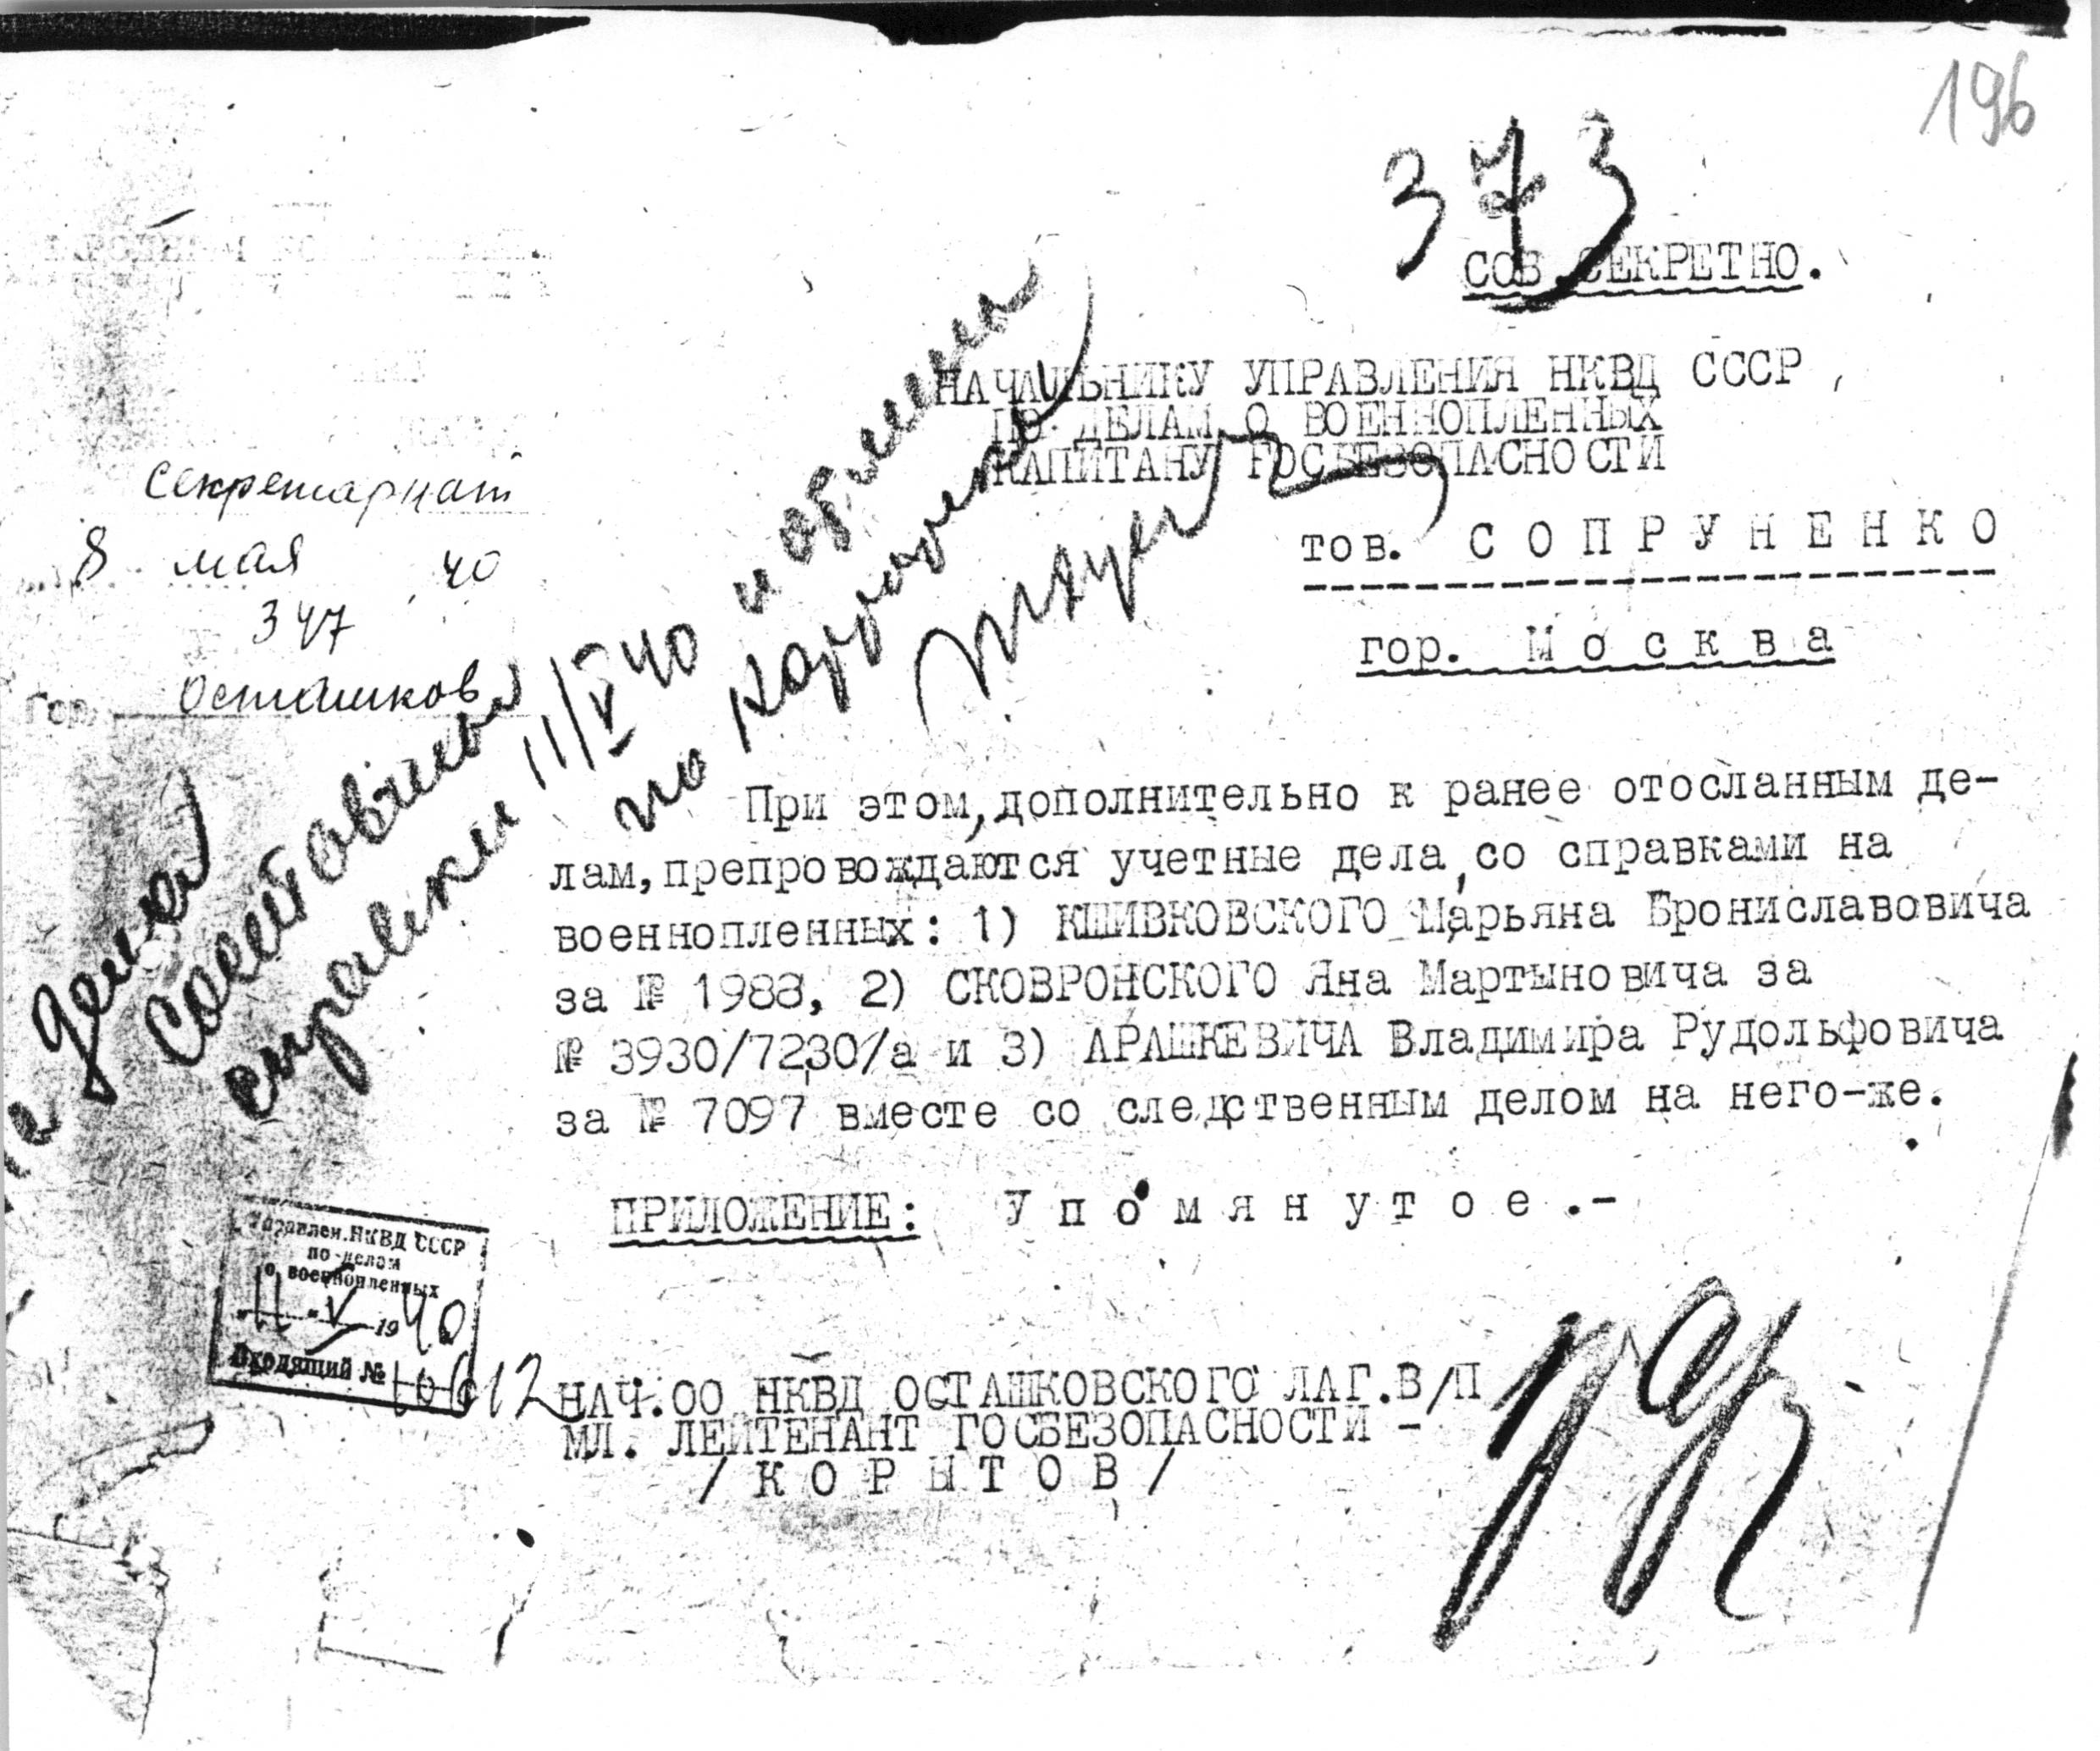 196
373
СОВ.СЕКРЕТНО.
НАЧАЛЬНИКУ УПРАВЛЕНИЯ НКВД СССР
ПО ДЕЛАМ О ВОЕННОПЛЕННЫХ
КАПИТАНУ ГОСБЕЗОПАСНОСТИ
тов. СОПРУНЕНКО
гор. Москва
секретариат
8 мая 40
347
Гор. Осташков
дела
составлены
справки 11/V 40 и объявлены
по
При этом, дополнительно к ранее отосланным де-
лам, препровождаются учетные дела, со справками на
военнопленных: 1) КШИВКОВСКОГО Марьяна Брониславовича
за № 1988, 2) СКОВРОНСКОГО Яна Мартыновича за
№ 3930/7230/а и 3) АРАШКЕВИЧА Владимира Рудольфовича
за № 7097 вместе со следственным делом на него-же.
ПРИЛОЖЕНИЕ: Упомянутое.-
Управлен. НКВД СССР
по делам
о военнопленных
"11" V 1940
Входящий № 10612
НАЧ.ОО НКВД ОСТАШКОВСКОГО ЛАГ.В/П
МЛ. ЛЕЙТЕНАНТ ГОСБЕЗОПАСНОСТИ -
/КОРЫТОВ/